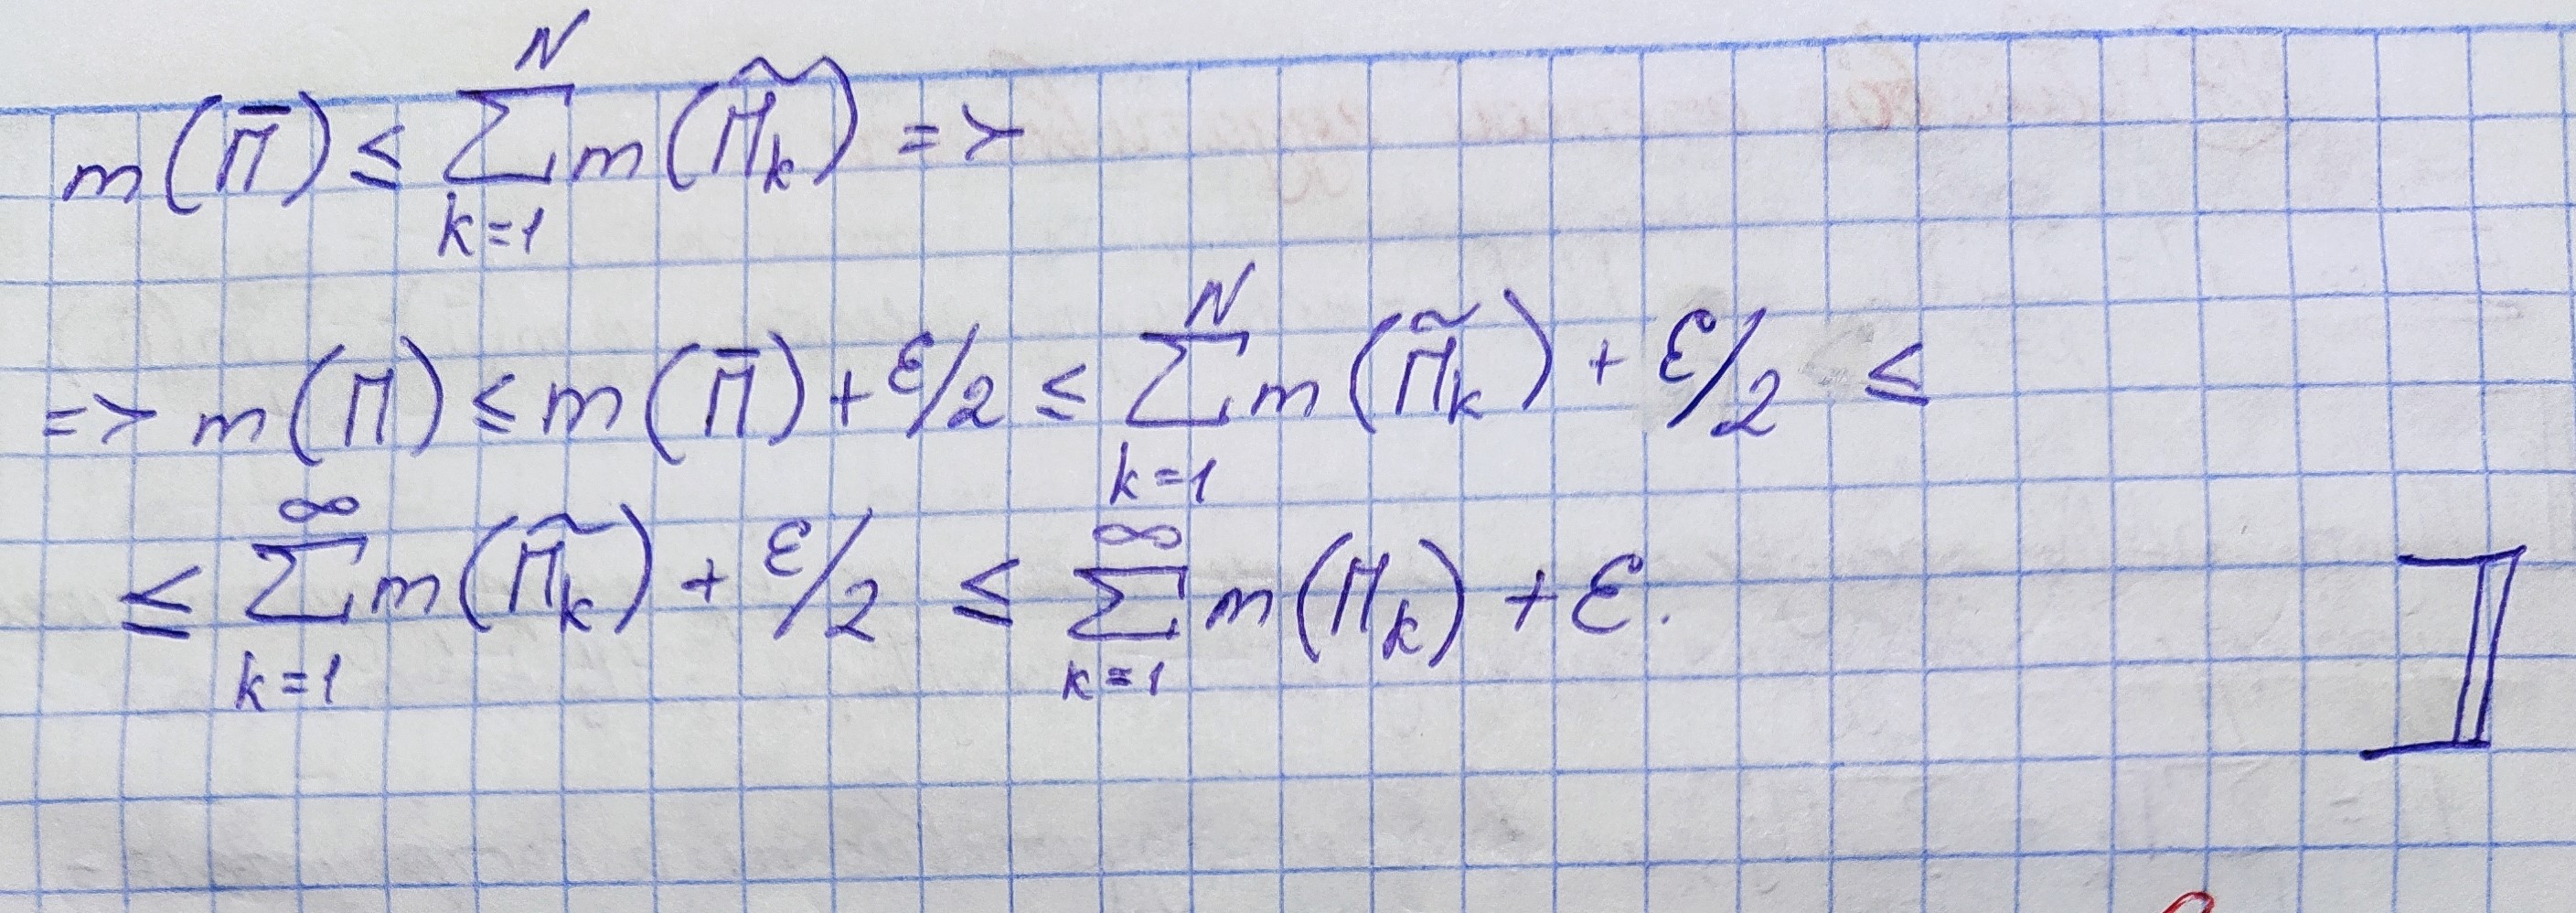 m(П̄) ≤ ∑_{k=1}^{N} m(П̃_k) =>
=> m(П) ≤ m(П̄) + ε/2 ≤ ∑_{k=1}^{N} m(П̃_k) + ε/2 ≤
≤ ∑_{k=1}^{∞} m(П̃_k) + ε/2 ≤ ∑_{k=1}^{∞} m(П_k) + ε.